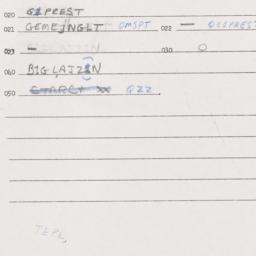 020 G1PREST
021 GEMEJNGLT OMSPT 022 — O22PREST
023 — 030 O
040 BIGLAJZIN
050 022
TEPL,